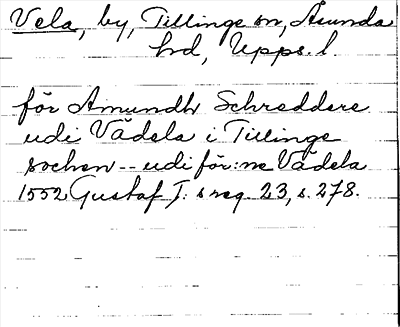 Vela, by, Tillinge sn, Åsunda
hd, Upps. l
för Amundh Schreddere
udi Vädela i Tillinge
sochen -- udi för:ne Vädela
1552 Gustaf I:s reg. 23, s. 278.